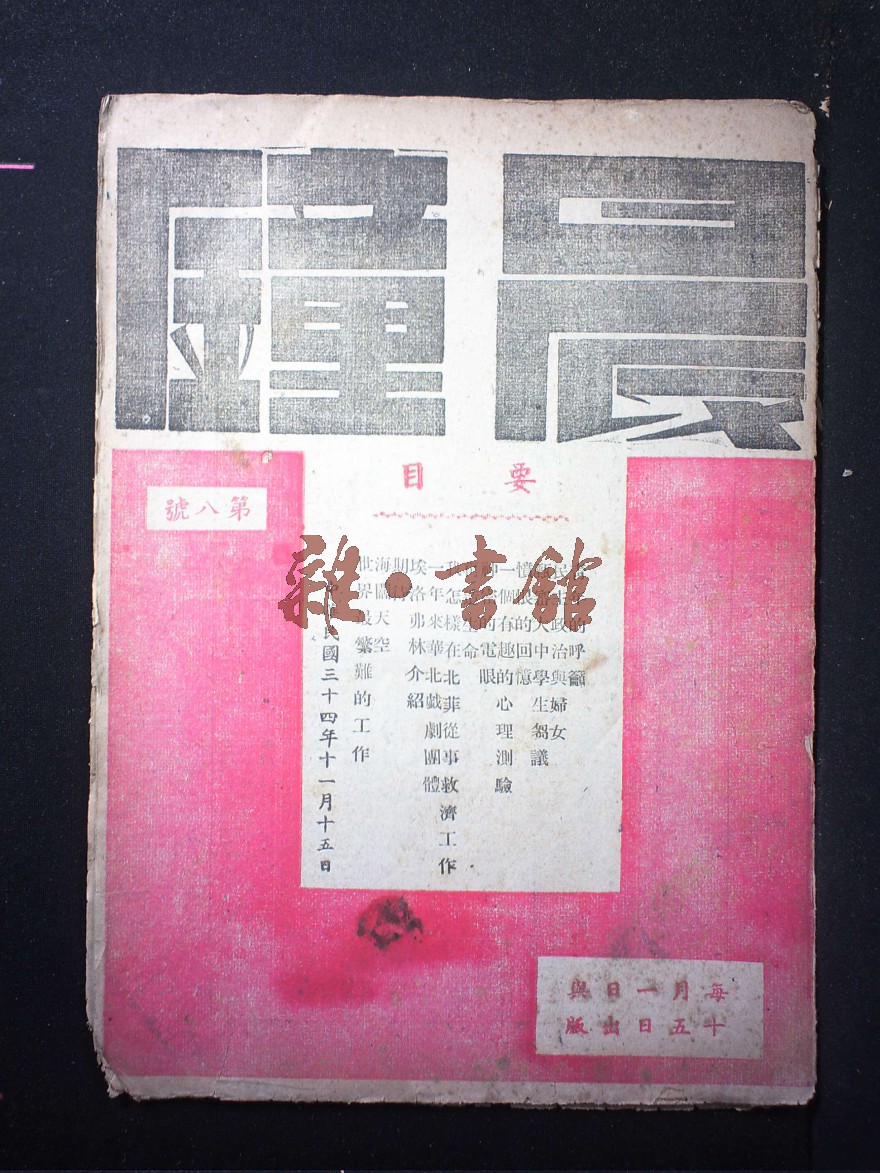 晨鐘
要目
第八號
的呼籲
民 政治與婦女
大中學生芻議
憶 的回憶
一個有趣的心理測驗
的電眼
生命
我怎樣在北菲從事救濟工作
一年來華北戲劇團體
埃洛弗林介紹
期
海闊天空
世界最繁難的工作
民國三十四年十一月十五日
每月一日與
十五日出版
雜·書館